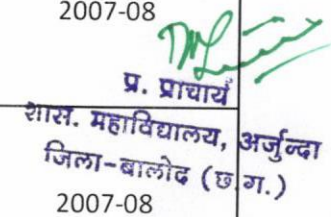 2007-08
प्र. प्राचार्य
शास. महाविद्यालय, अर्जुन्दा
जिला-बालोद (छ.ग.)
2007-08